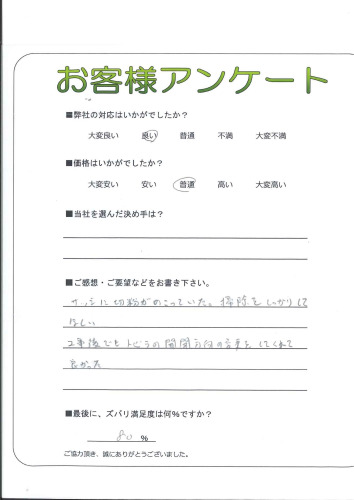 お客様アンケート
■弊社の対応はいかがでしたか？
大変良い 良い 普通 不満 大変不満
■価格はいかがでしたか？
大変安い 安い 普通 高い 大変高い
■当社を選んだ決め手は？
■ご感想・ご要望などをお書き下さい。
サッシに切粉がのこっていた。掃除をしっかりして
ほしい
工事後でもトビラの開閉方向の変更をしてくれて
良かった
■最後に、ズバリ満足度は何%ですか？
80 %
ご協力頂き、誠にありがとうございました。